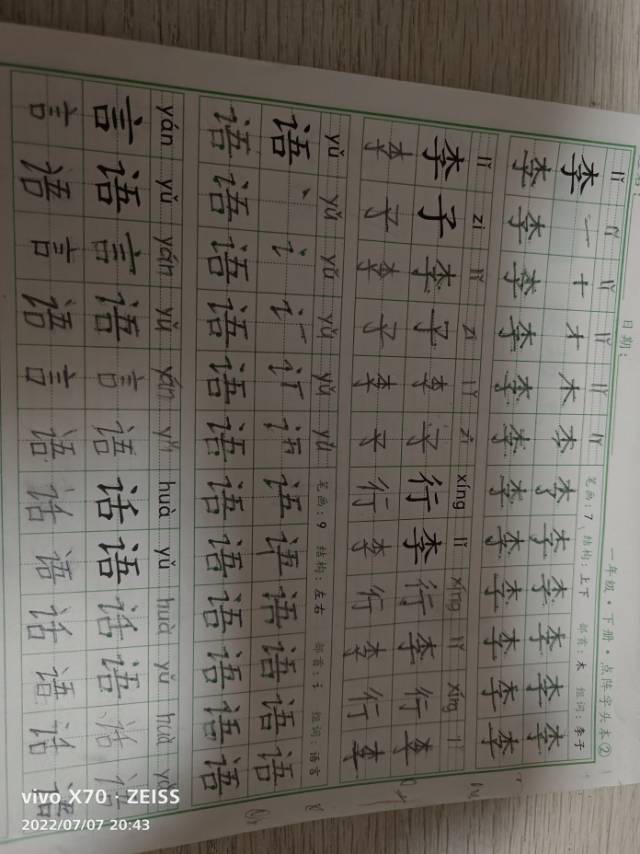 日期：
一年级·下册·点阵字头本②
lǐ lǐ lǐ lǐ lǐ lǐ 笔画：7 结构：上下 部首：木 组词：李子
李 一 十 才 木 李 李 李 李 李 李
李 李 李 李 李 李 李 李 李 李 李
lǐ zi lǐ zi lǐ zi xíng lǐ xíng lǐ xíng lǐ
李 子 李 子 李 子 行 李 行 李 行 李
李 子 李 子 李 子 行 李 行 李 行 李
yǔ yǔ yǔ yǔ yǔ yǔ 笔画：9 结构：左右 部首：讠 组词：语言
语 丶 讠 语 语 语 语 语
语 语 语 语 语 语 语 语 语 语 语
yán yǔ yán yǔ yán yǔ huà yǔ huà yǔ huà yǔ
言 语 言 语 言 语 话 语 话 语 话 语
言 语 言 语 言 语 话 语 话 语 话 语
vivo X70 · ZEISS
2022/07/07 20:43